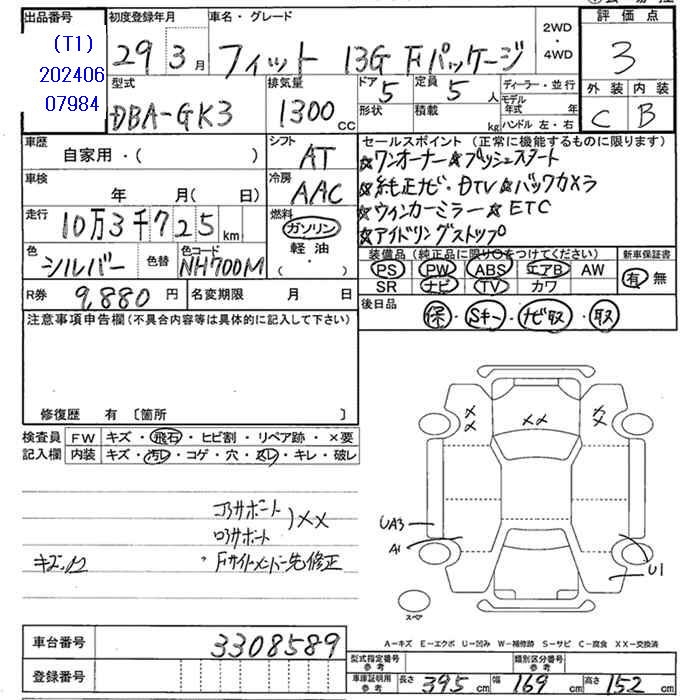 出品番号
(T1)
202406
07984
初度登録年月
29年3月
車名・グレード
フィット 13G Fパッケージ
2WD
・
4WD
評価点
3
外装 内装
C B
型式
DBA-GK3
排気量
1300cc
ドア 5
定員 5人
形状
積載 kg
ディーラー・並行
モデル年式 年
ハンドル 左・右
車歴
自家用・( )
シフト
AT
セールスポイント (正常に機能するものに限ります)
☆ワンオーナー☆プッシュスタート
☆純正ナビ・DTV☆バックカメラ
☆ウィンカーミラー☆ETC
☆アイドリングストップ
車検
年 月( 日)
冷房
AAC
走行
10万3千725km
燃料
ガソリン
軽油
( ・ )
色
シルバー
色替
色コード
NH700M
装備品 (純正品に限り○をつけてください)
PS PW ABS エアB AW
SR ナビ TV カワ
新車保証書
有 無
R券 9,880円
名変期限 月 日
後日品
保・Sキー・ナビ取・取
注意事項申告欄 (不具合内容等は具体的に記入して下さい)
修復歴 有 〔箇所 〕
検査員
記入欄
FW キズ・飛石・ヒビ割・リペア跡・×要
内装 キズ・汚レ・コゲ・穴・スレ・キレ・破レ
コアサポート
ロアサポート
)××
Fサイドメンバー先修正
××
××
××
UA3
A1
U1
スペア
A-キズ E-エクボ U-凹み W-補修跡 S-サビ C-腐食 XX-交換済
車台番号
3308589
登録番号
型式指定番号
参考
類別区分番号
参考
車庫証明用
参考
長さ 395cm 幅 169cm 高さ 152cm